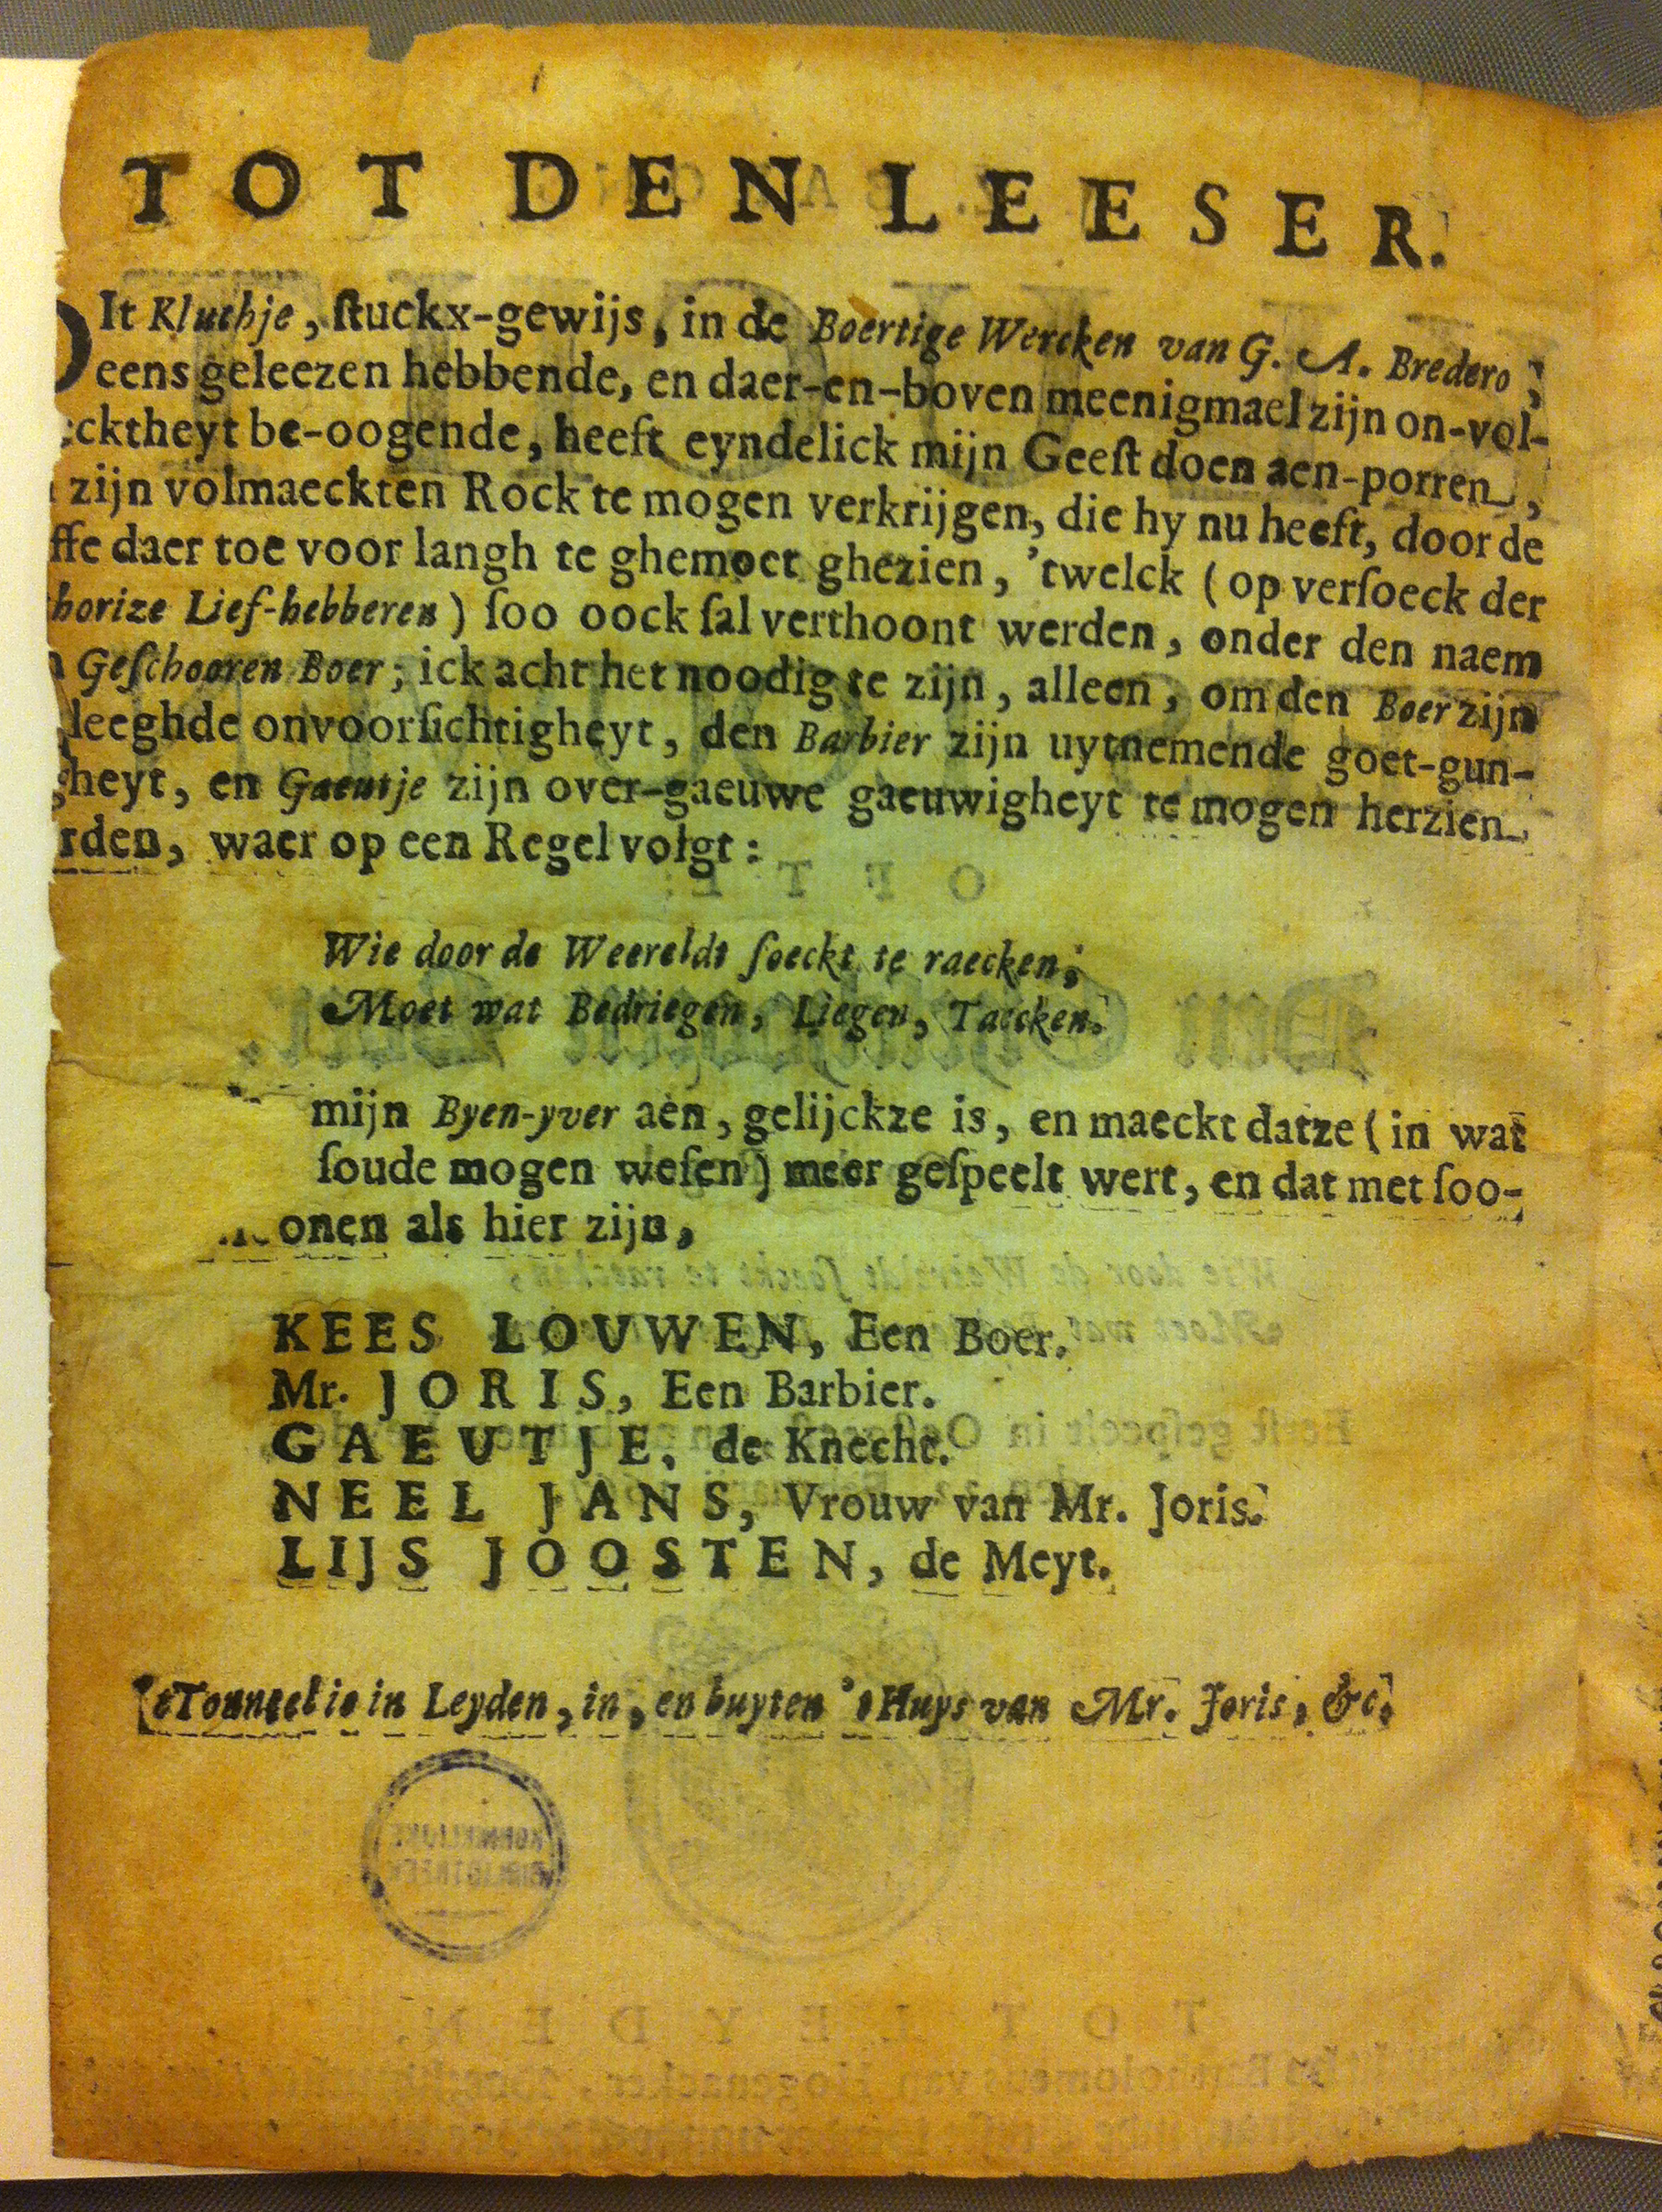 TOT DEN LEESER.
DIt Kluchje, ſtuckx-gewijs, in de Boertige Wercken van G. A. Bredero;
eens geleezen hebbende, en daer-en-boven meenigmael zijn on-vol-
ecktheyt be-oogende, heeft eyndelick mijn Geeſt doen aen-porren,
zijn volmaeckten Rock te mogen verkrijgen, die hy nu heeft, door de
ffe daer toe voor langh te ghemoet ghezien, 'twelck (op verſoeck der
horize Lief-hebberen) ſoo oock ſal verthoont werden, onder den naem
Geſchooren Boer; ick acht het noodig te zijn, alleen, om den Boer zijn
leeghde onvoorſichtigheyt, den Barbier zijn uytnemende goet-gun-
gheyt, en Gaeutje zijn over-gaeuwe gaeuwigheyt te mogen herzien
rden, waer op een Regel volgt:
Wie door de Weereldt ſoeckt te raecken;
Moet wat Bedriegen, Liegen, Taecken.
mijn Byen-yver aen, gelijckze is, en maeckt datze (in wat
ſoude mogen weſen) meer geſpeelt wert, en dat met ſoo-
onen als hier zijn,
KEES LOUWEN, Een Boer.
Mr. JORIS, Een Barbier.
GAEUTJE, de Knecht.
NEEL JANS, Vrouw van Mr. Joris.
LIJS JOOSTEN, de Meyt.
'tTonneel is in Leyden, in, en buyten 't Huys van Mr. Joris, &c.
KONINKLIJKE
BIBLIOTHEEK